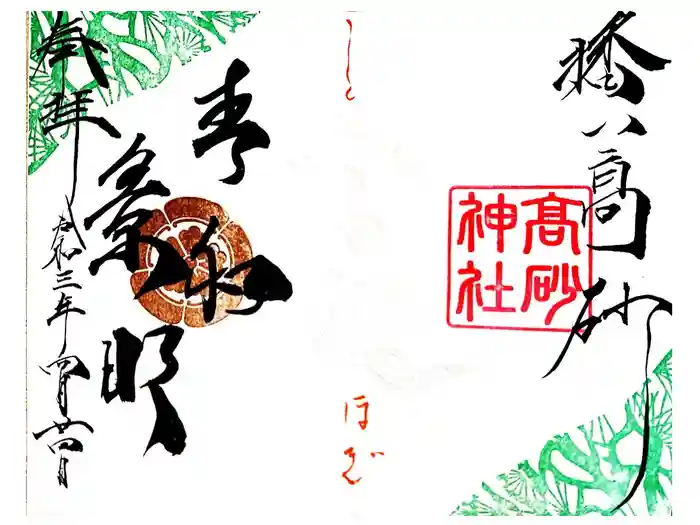 播州高砂
高砂
神社
春和
景明
奉拝
令和三年四月